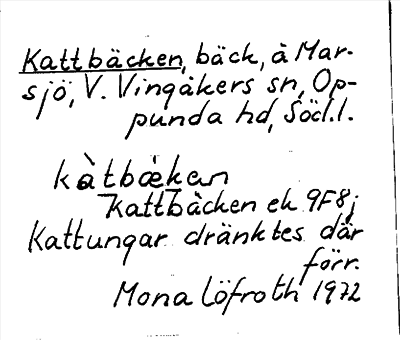 Kattbäcken, bäck, å Mar-
sjö, V. Vingåkers sn, Op-
punda hd, Södl.l.
kàtbækan
Kattbäcken ek 9F8j
Kattungar dränktes där
förr.
Mona Löfroth 1972